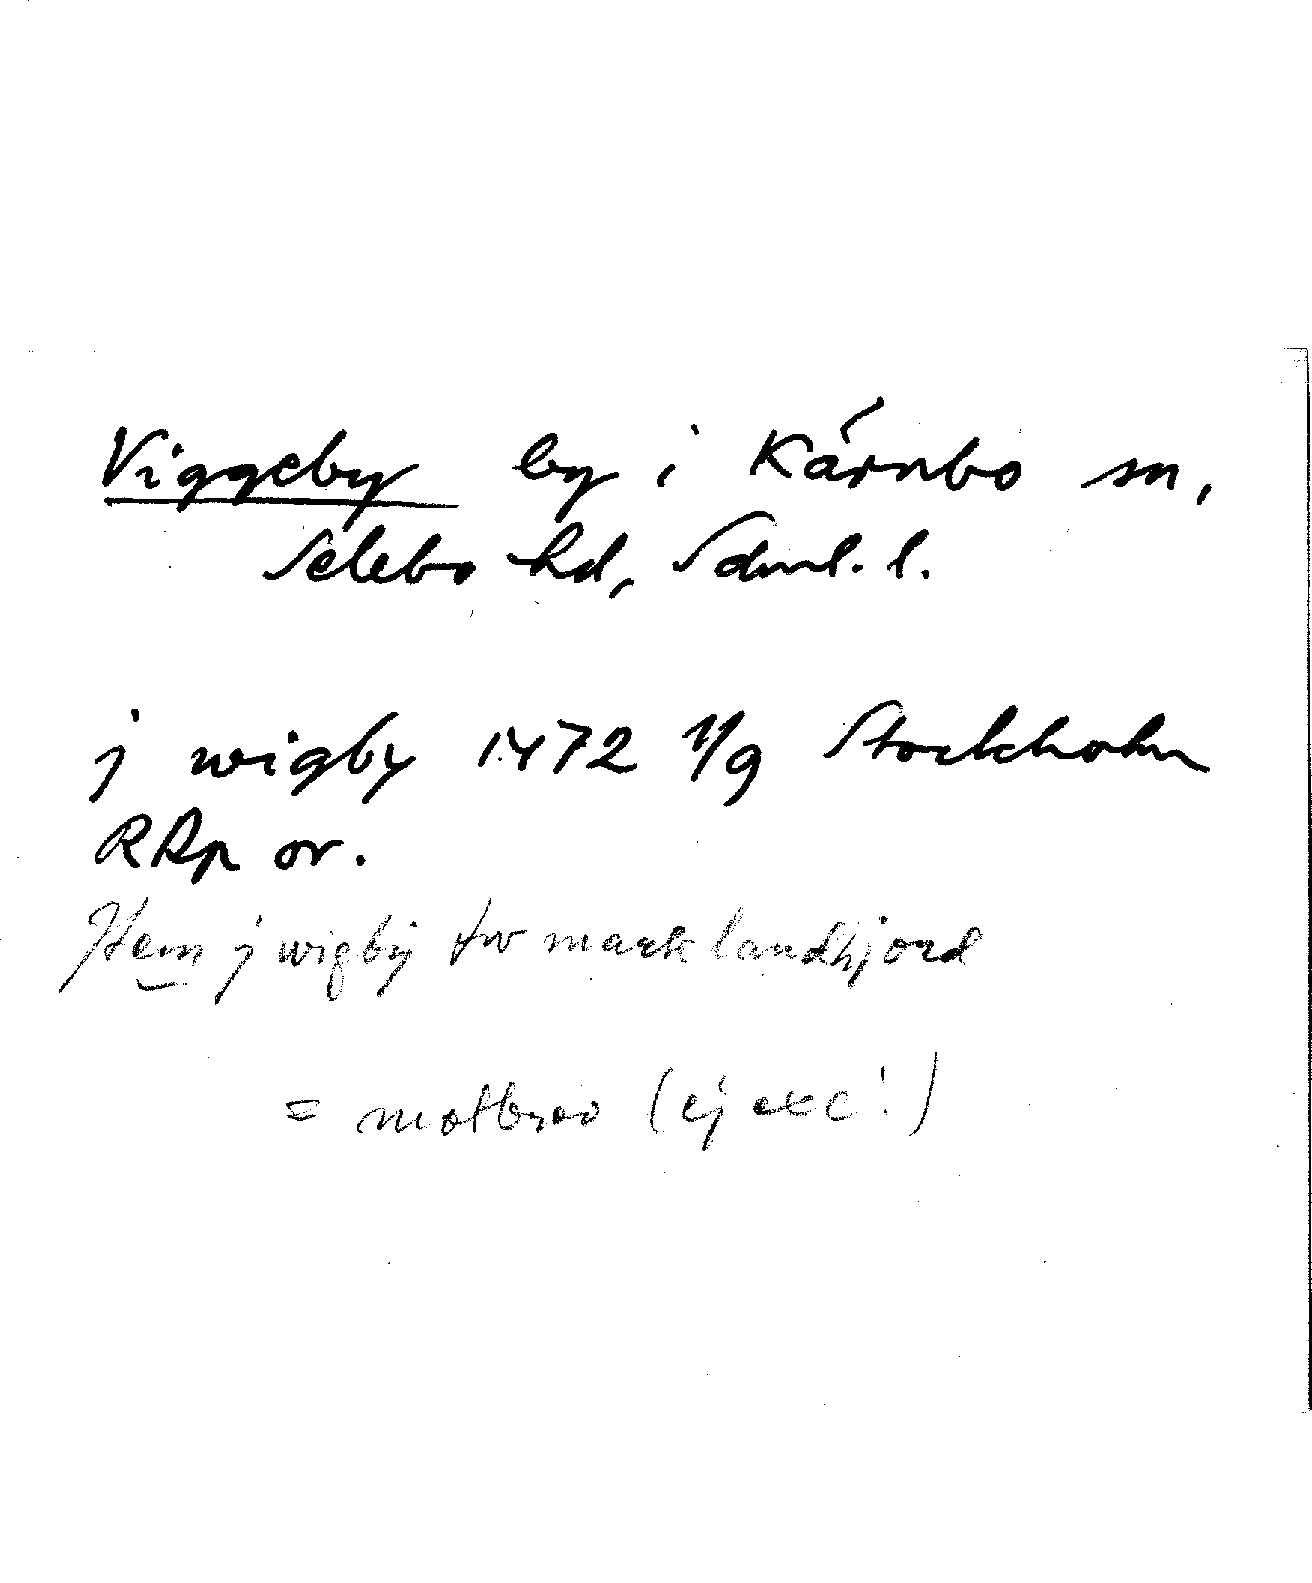 Viggeby by i Kärnbo sn,
Selebo hd, Sdml. l.
j wigby 1472 1/9 Stockholm
RAp or.
Item j wigby tw mark landhjord
= motbrev (ej exc!)